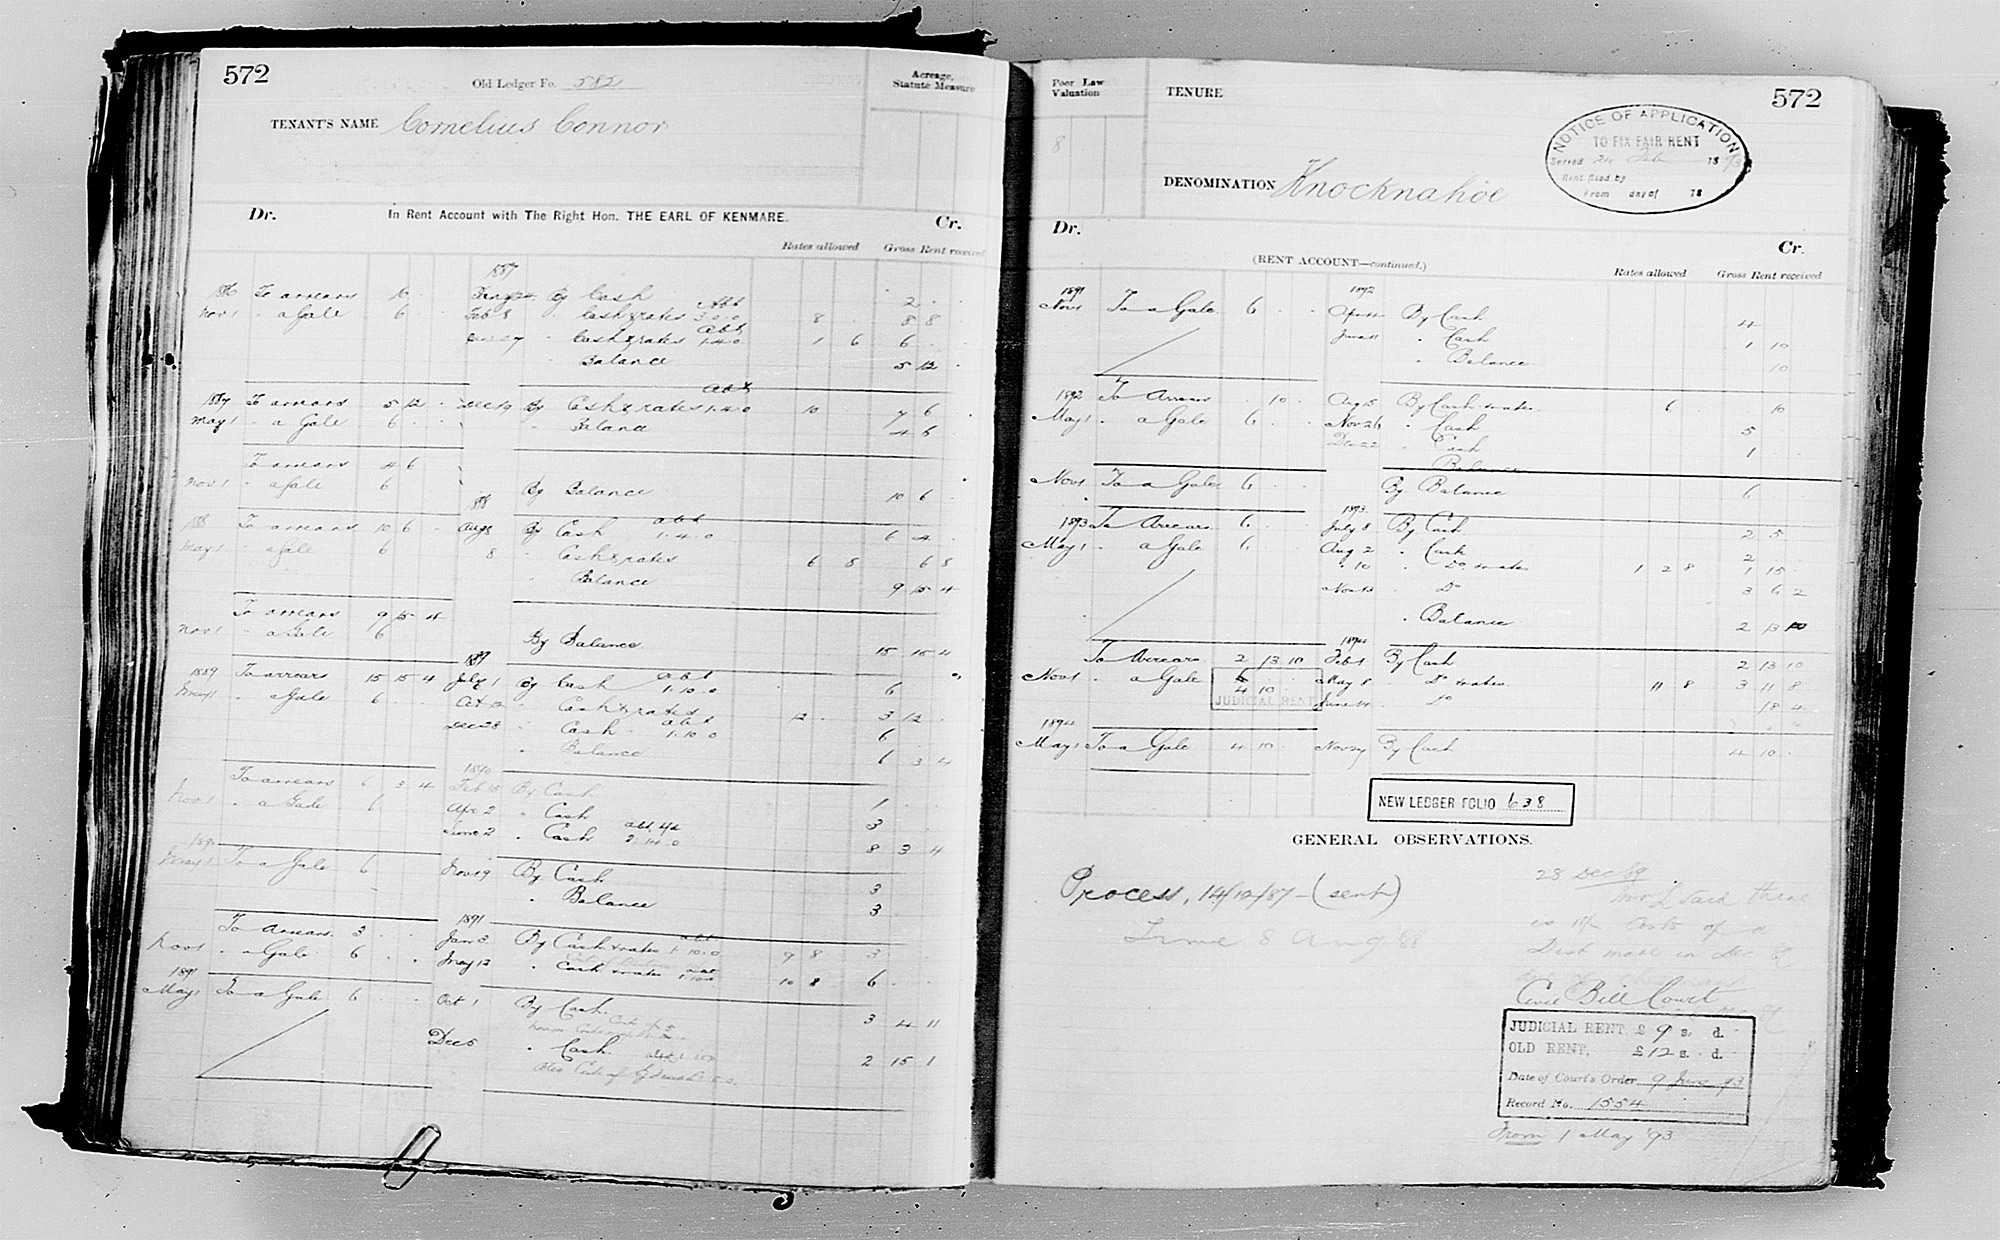 572
Old Ledger Fo. 582
Acreage, Statute Measure
TENANT'S NAME Cornelius Connor
Dr. In Rent Account with The Right Hon. THE EARL OF KENMARE. Cr.
Rates allowed Gross Rent received
1887
To arrears 16 By Cash 2
Nov 1 " a Gale 6 Feb 8 " Cash & rates 3.0.0 8 8 8
" Cash & rates 1.4.0 1 6 6
Balance 5 12
abt
1887 To arrears 5 12 Dec 19 By Cash & rates 1.4.0 10 7 6
May 1 " a Gale 6 " Balance 4 6
To arrears 4 6
Nov 1 " a Gale 6 By Balance 10 6
188
To arrears 10 6 Aug 8 By Cash abt 1.4.0 6 4
May 1 " a Gale 6 8 " Cash & rates 6 8 6 8
" Balance 9 15 4
To arrears 9 15 4
Nov 1 " a Gale 6 By Balance 15 15 4
1889
1889 To arrears 15 15 4 July 1 By Cash abt 1.10.0 6
May 1 " a Gale 6 Oct 12 " Cash & rates 12 3 12
Dec 28 " Cash abt 1.10.0 6
" Balance 6 3 4
1890
To arrears 6 3 4 Feb 15 By Cash 1
Nov 1 " a Gale 6 Apr 2 " Cash 3
June 2 " Cash 2.14.0 8 3 4
1890
May 1 To a Gale 6 Nov 19 By Cash 3
" Balance 3
1891
To Arrears 3 Jan 3 By Cash & rates abt 1.10.0 9 8 3
Nov 1 " a Gale 6 May 12 " Cash & rates abt 10 8 6
1891
May 1 To a Gale 6 Oct 1 By Cash 3 4 11
Dec 5 " Cash 2 15 1
Poor Law Valuation
8
TENURE
572
NOTICE OF APPLICATION
TO FIX FAIR RENT
Served Feb 18
Rent fixed by
From day of 18
DENOMINATION Knocknahoe
Dr. Cr.
(RENT ACCOUNT—continued.)
Rates allowed Gross Rent received
1891 1892
Nov 1 To a Gale 6 Apr By Cash 4
June " Cash 1 10
" Balance 10
1892 To Arrears 10 Aug 15 By Cash & rates 6 10
May 1 " a Gale 6 Nov 26 " Cash 5
Dec 22 " Cash 1
" Balance
Nov 1 To a Gale 6 By Balance 6
1893
1893 To Arrears 6 July 8 By Cash 2 5
May 1 " a Gale 6 Aug 2 " Cash 2
" 10 " Do & rates 1 2 8 1 15
Nov 13 " Do 3 6 2
" Balance 2 13 10
1894
To Arrears 2 13 10 Feb 1 By Cash 2 13 10
Nov 1 " a Gale 6 May 8 " Do & rates 11 8 3 11 8
4 10 June 14 " Do 18 4
JUDICIAL RENT
1894
May 1 To a Gale 4 10 Nov 27 By Cash 4 10
NEW LEDGER FOLIO 638
GENERAL OBSERVATIONS.
Process, 14/10/87 - (sent)
Time 8 Aug 88
28 Dec 89
said there
is costs of a
Dist made in Dec
Civil Bill Court
JUDICIAL RENT £ 9 s. d.
OLD RENT, £ 12 s. d.
Date of Court's Order 9 June 93
Record No. 1554
From 1 May '93